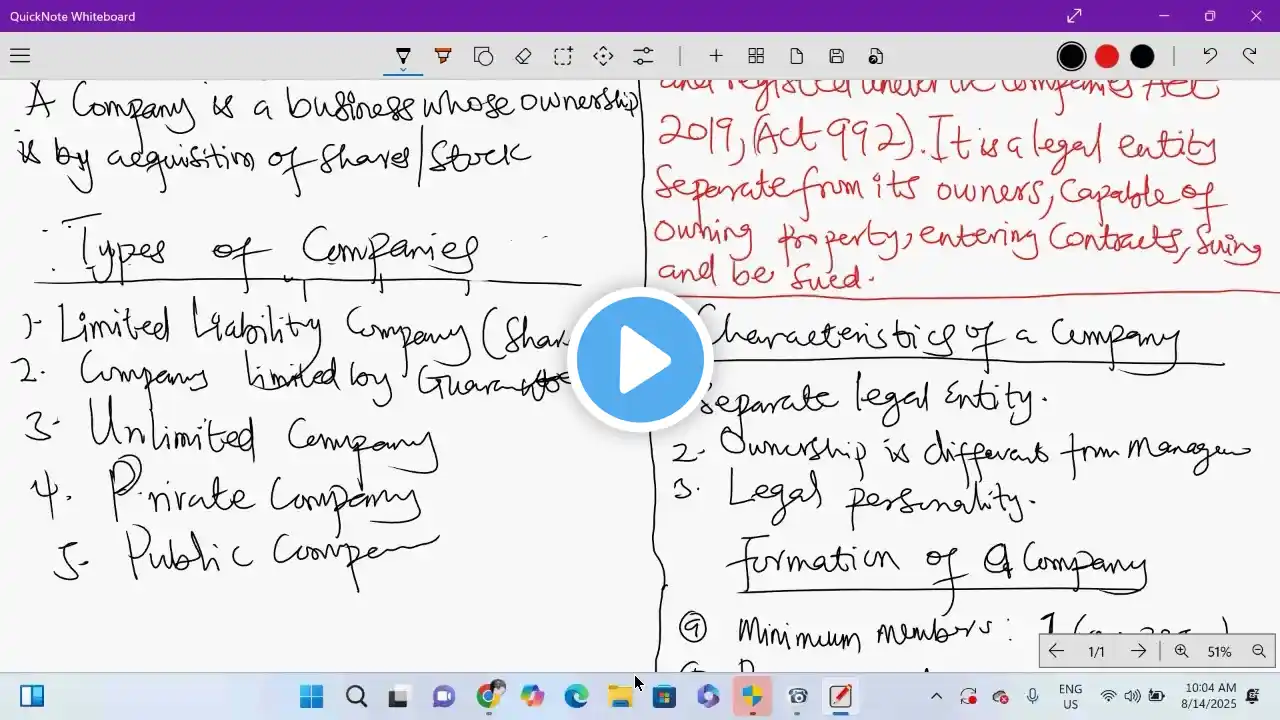 QuickNote Whiteboard
A Company is a business whose ownership
is by acquisition of shares/stock
Types of Companies
1- Limited Liability Company (Shar
2. Company limited by
3- Unlimited Company
4. Private Company
5- Public
and registered under Companies Act
2019, (Act 992). It is a legal entity
Separate from its owners, Capable of
owning property, entering Contracts, Suing
and be Sued.
Characteristics of a Company
Separate legal Entity.
2- Ownership is different from
3. Legal personality.
Formation of a Company
a Minimum members: 1
1/1
51%
ENG
US
10:04 AM
8/14/2025